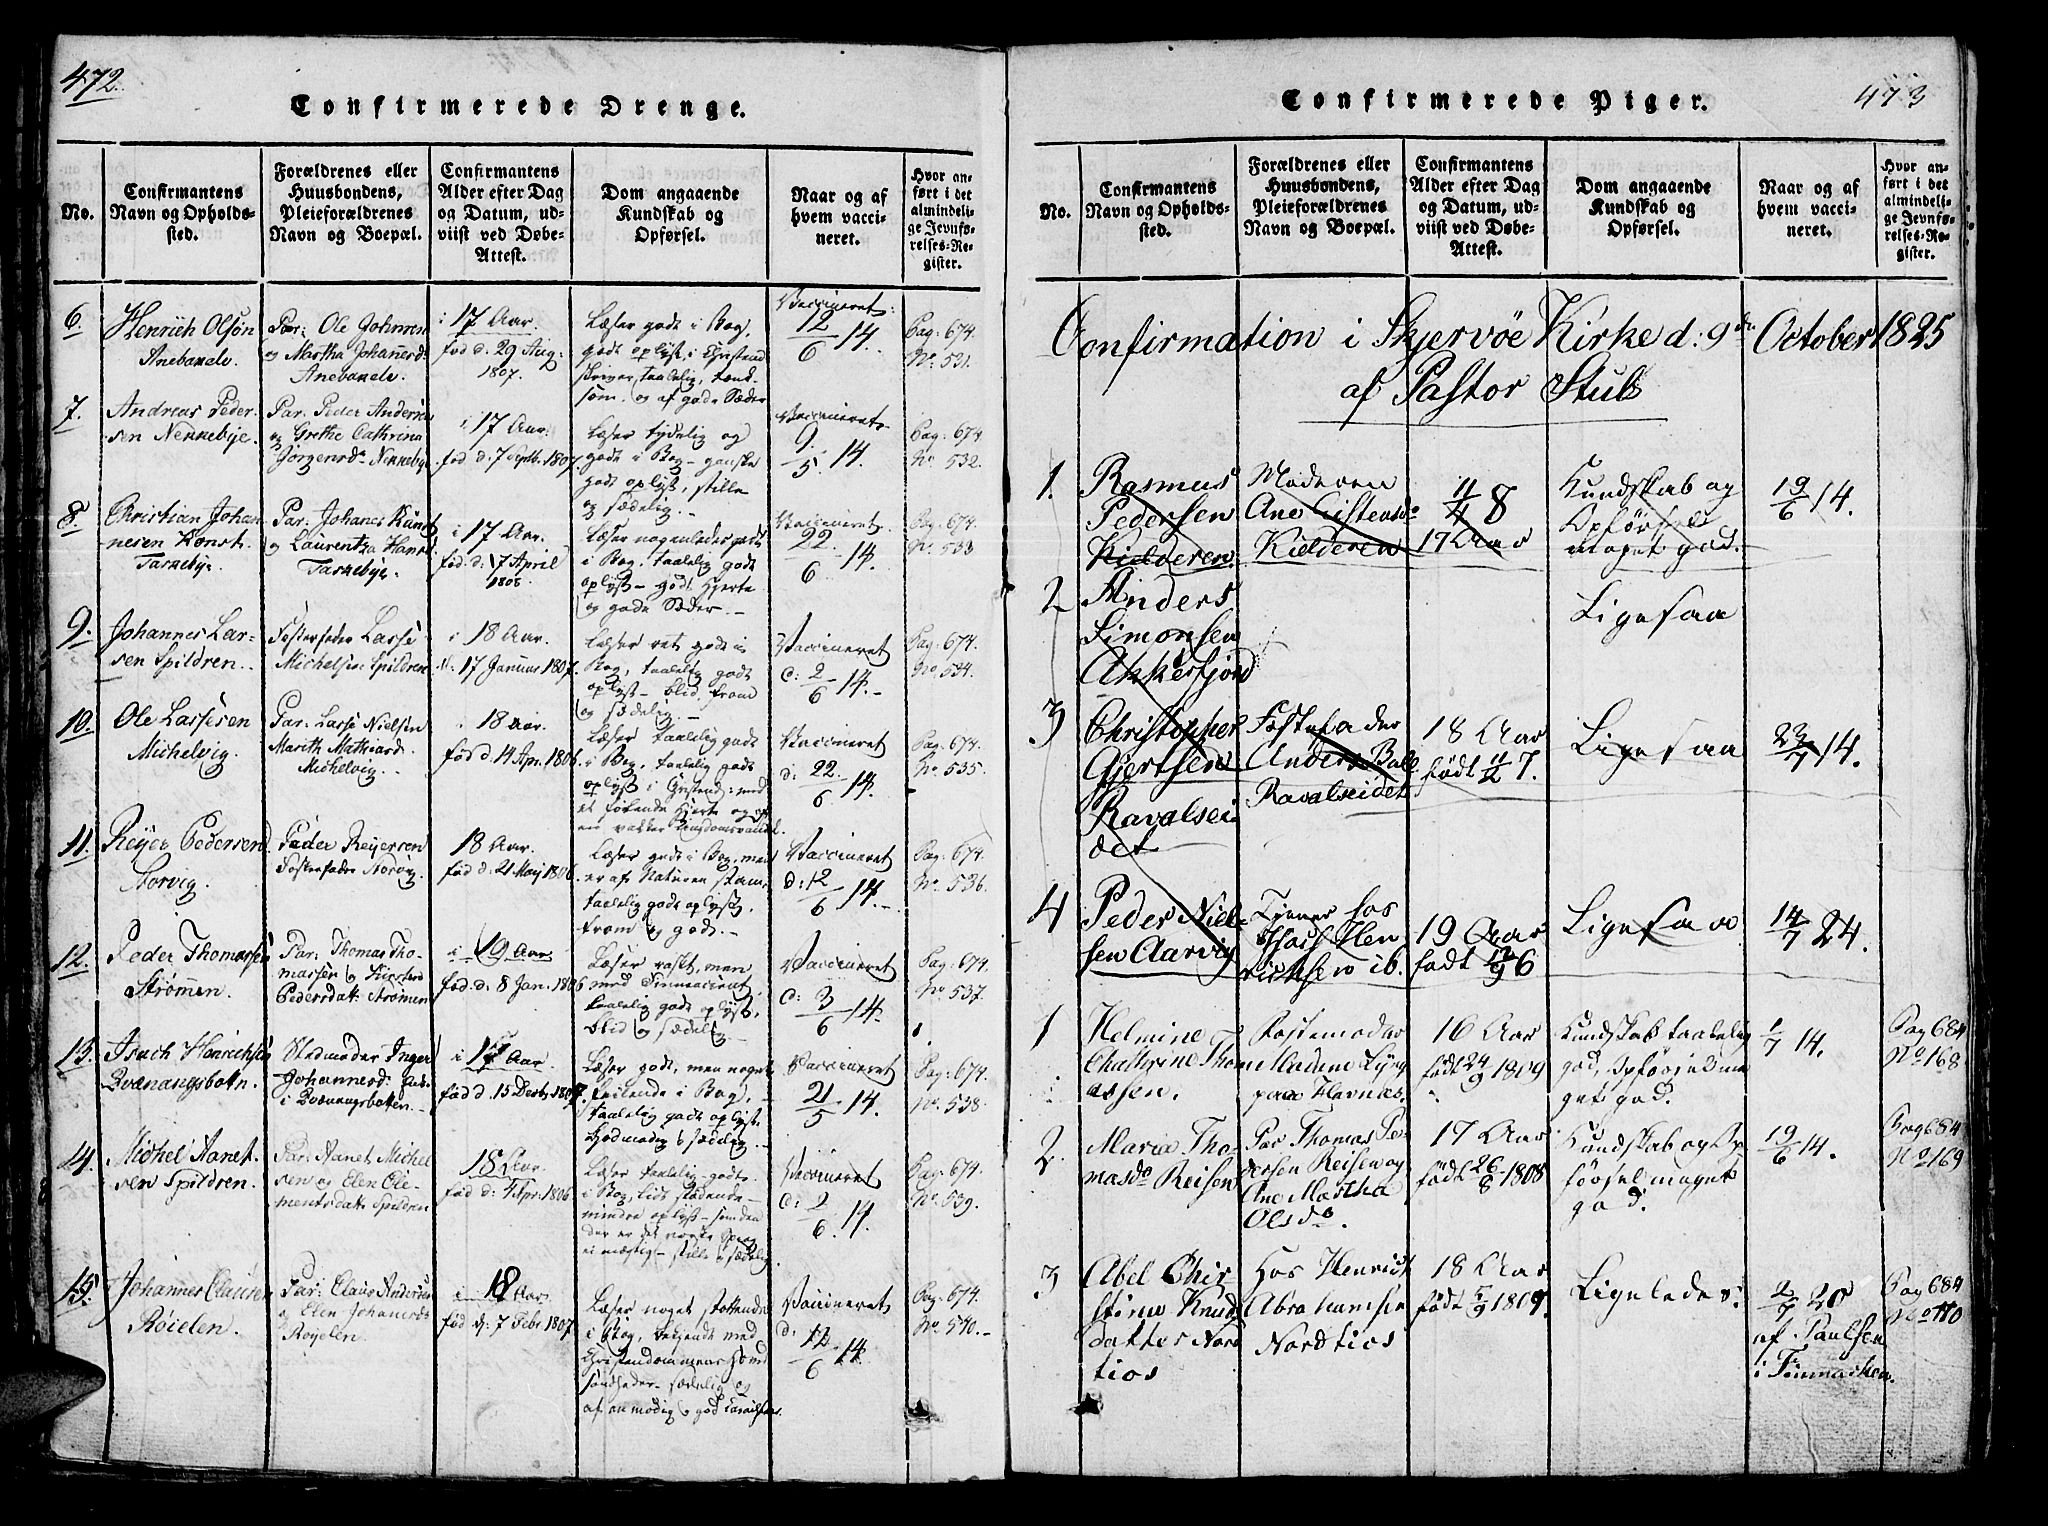 472.
Confirmerede Drenge.
No.
Confirmantens
Navn og Opholds-
sted.
Forældrenes eller
Huusbondens,
Pleieforældrenes
Navn og Boepæl.
Confirmantens
Alder efter Dag
og Datum, ud-
viist ved Døbe-
Attest.
Dom angaaende
Kundskab og
Opførsel.
Naar og af
hvem vacci-
neret.
Hvor an-
ført i det
almindeli-
ge Jevnfø-
relses-Re-
gister.
6.
Henrich Olsøn
Par: Ole Johnsen
og Martha
i 17 Aar.
fød d. 29 Aug:
1807.
Læser godt i Bog,
godt oplyst i
og af gode Sæder
Vaccineret:
12/6 14.
Pag: 674.
No: 531.
7.
Andreas Peder-
sen Nennebye.
Par: Peder Andersen
og Grethe Cathrina
Jørgensd. Nennebye
i 17 Aar.
fød d: 7 Septb. 1807.
Læser tydelig og
godt i Bog - ganske
godt oplyst, stille
og sædelig. -
Vaccineret.
9/5. 14.
Pag: 674
No: 532.
8.
Christian Johan-
nesen
Par: Johanes
og
i 17 Aar.
fød. d: 17 April
Læser nogenledes godt
i Bog, taalelig godt
oplyst - godt Hjerte
og gode Sæder. -
Vaccineret.
22/6 14.
Pag: 674.
No: 533
9.
Johannes Lar-
sen Spildren.
Fosterfader Lasse
Michelsen Spildren
i 18 Aar.
17 Januar 1807.
Læser ret godt i
Bog, taalelig godt
oplyst - blid, from
og sædelig. -
Vaccineret
d: 2/6 14.-
Pag: 674.
No: 534.
10.
Ole Lassesen
Michelvig.
Par: Lasse Nielsen
Marith
Michelvig.
i 18 Aar.
fød d. 14 Apr. 1806
Læser taalelig godt
i Bog, taalelig godt
oplyst i Christend: med
et følende Hjerte og
Vaccineret
d: 22./6 14.
Pag: 674.
No: 535.
11.
Reyer Pedersen
Storvig.
Peder Reyersen
Fosterfader
18 Aar.
fød d: 21 Maij 1806.
Læser godt i Bog, men
er af Naturen stam,
taalelig godt oplyst,
from og godt. -
Vaccineret
d: 12/6 14.-
Pag: 674.
No: 536.
12.
Peder Thomassen
Strømen.
Par: Thomas Tho-
massen og
Pedersdat: Strømen
i 19 Aar
fød d: 8 Jan. 1806
Læser rask, men
taalelig godt oplyst,
blid og sædelig
Vaccineret
d: 3/6 14.
Pag: 674.
No: 537.
13.
Isach Henrichsen
Qvænangsbotn.
Stedmoder Inger
Johannesd:
i Qvænangsbotten. -
i 17 Aar
fød d. 15 Decbr. 1807.
Læser godt, men noget
feilende i Bog,
taalelig godt oplyst.
Godmodig og sædelig. -
Vaccineret
21/5 14.
Pag: 674.
No: 538.
14.
Michel Aanet-
sen Spildren.
Par: Aanet Michel
sen og Elen Cle-
mentsdat: Spildren
18 Aar.
fød d: Apr. 1806
Læser taalelig godt
i Bog, lidt stødende
mindre oplyst - som den
der er det norske Sprog
ei mægtig - stille og sædelig
Vaccineret
d: 2/6 14.
Pag: 674.
No: 539.
15.
Johannes Clausen
Røielen.
Par: Claus Andersen
og Elen Johansd:
Røielen.
i 18 Aar.
fød d: 7 Febr. 1807
Læser noget stottende
i Bog, bekjendt med
Christendommens Sand-
heder - sædelig og
Vaccineret
d: 12/6 14.
Pag: 674.
No: 540.-
473
Confirmerede Piger.
No.
Confirmantens
Navn og Opholds-
sted.
Forældrenes eller
Huusbondens,
Pleieforældrenes
Navn og Boepæl.
Confirmantens
Alder efter Dag
og Datum, ud-
viist ved Døbe-
Attest.
Dom angaaende
Kundskab og
Opførsel.
Naar og af
hvem vacci-
neret.
Hvor an-
ført i det
almindeli-
ge Jevnfø-
relses-Re-
gister.
Confirmation i Skjervöe Kirke d: 9de October 1825
af Pastor Stub
1.
Rasmus
Pedersen
Kielderen.
Moderen
Ane
Kielderen
11/4 8
17 Aar
Kundskab og
Opförsel
meget god.
19/6 14.
2
Anders
Simonsen
Akkerfjord
Ligesaa
3
Christopher
Gjertsen
Ravalsei-
det
Fosterfader
Anders Ball
Ravalseidet
18 Aar
födt 11/12 7.
Ligesaa
23/7 14.
4
Peder Niel-
sen Aarvig
Tjener hos
Isach Hen
richsen ib.
19 Aar
födt 12/9 6
Ligesaa
14/7 24.
1
Helmine
Chathrine Thom
assen.
Fostemoder
Madme Lyng
paa Havnæs.
16 Aar
födt 24/9 1809
Kundskab taalelig
god, Opförsel me
get god.
1/7 14.
Pag 684
No 168
2.
Maria Tho-
masdr Reisen
Par Thomas Pe-
dersen Reisen og
Ane Martha
Olsdr.
17 Aar
födt 26/8 1808
Kundskab og Op
försel meget
god.
19/6 14.
Pag 684
No 169
3
Abel Chir
stine Knuds
datter Nord
tios
Hos Henrich
Abrahamsen
Nordtios
18 Aar
födt 1809.
Ligeledes.
2/7 20
af Paulsen
i Finmarken.
Pag 684
No 170